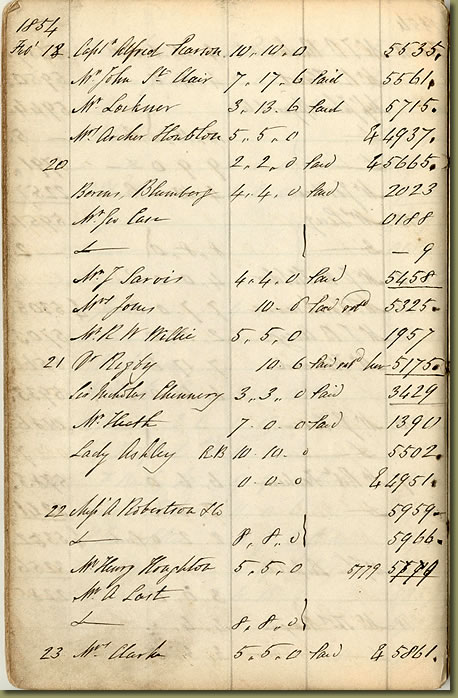 1854
Feb 18 Captn Alfred Pearson 10.10.0 5535.
Mr John St Clair 7.17.6 Paid 5561.
Mr Lockner 3.13.6 Paid 5715.
Mrs Archer Houblon 5.5.0 & 4937.
20 2.2.0 Paid & 5665.
Berens, Blumberg 4.4.0 Paid 2023
Mr Jos Case 0188
— 9
Mr J Jarvis 4.4.0 Paid 5458
Mrs Jones 10.0 Paid 5325.
Mr R W Willie 5.5.0 1957
21 Dr Rigby 10.6 Paid 5175.
Sir Nicholas Chinnery 3.3.0 Paid 3429
Mr Heath 7.0.0 Paid 1390
Lady Ashley RB 10.10.0 5502.
0.0.0 & 4951.
22 Miss A Robertson & Co 5959
8.8.0 5966
Mr Henry Houghton 5.5.0 5779 5779
Mr A Last
8.8.0
23 Mrs Clarke 5.5.0 Paid & 5861.